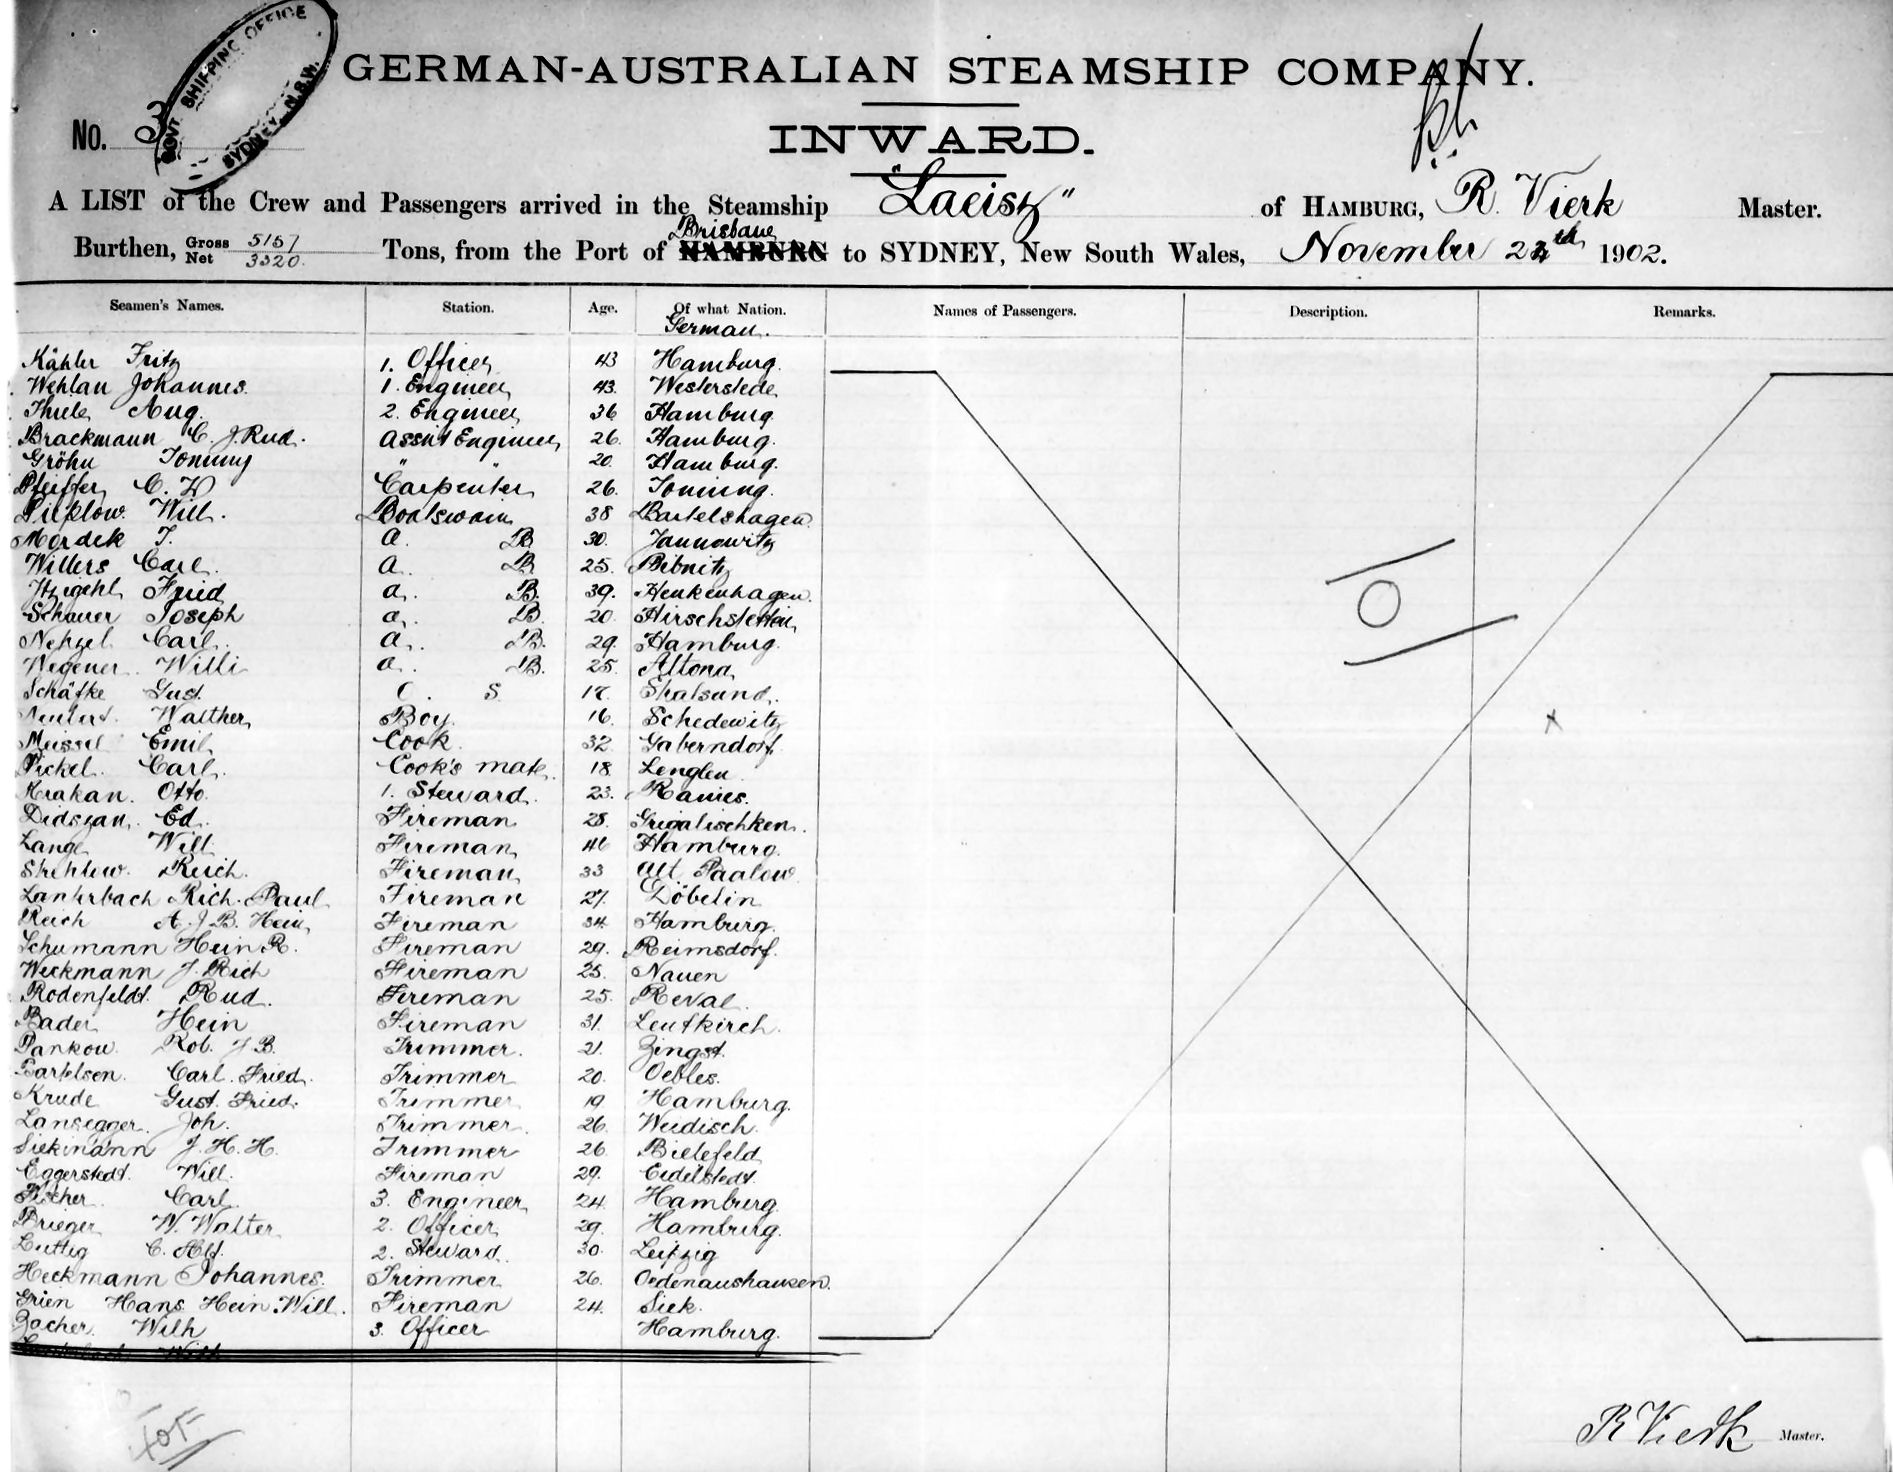 GOVT SHIPPING OFFICE
SYDNEY, N.S.W.
GERMAN-AUSTRALIAN STEAMSHIP COMPANY.
No. 3
INWARD.
A LIST of the Crew and Passengers arrived in the Steamship "Laeisz" of HAMBURG, R. Vierk Master.
Brisbane
Burthen, Gross 5157 Net 3320. Tons, from the Port of HAMBURG to SYDNEY, New South Wales, November 24th 1902.
Seamen's Names. Station. Age. Of what Nation. Names of Passengers. Description. Remarks.
German.
Kähler Fritz 1. Officer 43 Hamburg.
Wehlau Johannes. 1. Engineer 43. Westerstede
Thiele Aug. 2. Engineer 36 Hamburg
Brackmann C. J. Rud. Assist Engineer 26. Hamburg.
Gröhn Tommy " " 20. Hamburg.
Pfeiffer C. W Carpenter 26. Tönning.
Pieplow Will. Boatswain 38 Bartelshagen
Mordek T. A. B 30. Jannowitz
Willers Carl. A. B 25. Ribnitz
Fried a. B. 39. Henkenhagen.
Schauer Joseph a. B. 20 Hirschstetten
Carl. a. B. 29. Hamburg.
Wegener Willi a. B. 25. Altona
Schäfke Gust. O. S. Stralsund.
Walther Boy. 16. Schedewitz
Meissel Emil Cook. 32. Gaberndorf.
Pickel. Carl. Cook's mate. 18. Lenglen
Krakan. Otto. 1. Steward. 23. Ranies.
Didszan. Ed. Fireman 28. Grigalischken.
Lange Will. Fireman Hamburg.
Strehlow. Reich. Fireman 33 Alt Paalow
Lauterbach Rich. Paul Fireman 27. Döbelin
Reich A. J. B. Hein. Fireman 34. Hamburg.
Schumann Hein R. Fireman 29. Reimsdorf.
Weckmann J. Rich Fireman 25. Nauen
Rodenfeldt. Rud. Fireman 25. Reval.
Bader Hein Fireman 31. Leutkirch.
Pankow. Rob. J B. Trimmer. 21. Zingst.
Bartelsen. Carl. Fried. Trimmer 20. Oebles.
Krude Gust. Fried. Trimmer 19 Hamburg.
Lansegger. Joh. Trimmer. 26. Weidisch.
Siekmann J. H. H. Trimmer 26 Bielefeld
Eggerstedt. Will. Fireman 29. Eidelstedt.
Fischer Carl 3. Engineer 24. Hamburg
Brieger W. Walter 2. Officer 29. Hamburg.
Luttig C. Alf. 2. Steward. 30. Leipzig
Heckmann Johannes. Trimmer 26. Oedenaushausen.
Grien Hans Hein. Will. Fireman 24. Siek.
Zacher. Wilh 3. Officer Hamburg.
R Vierk Master.